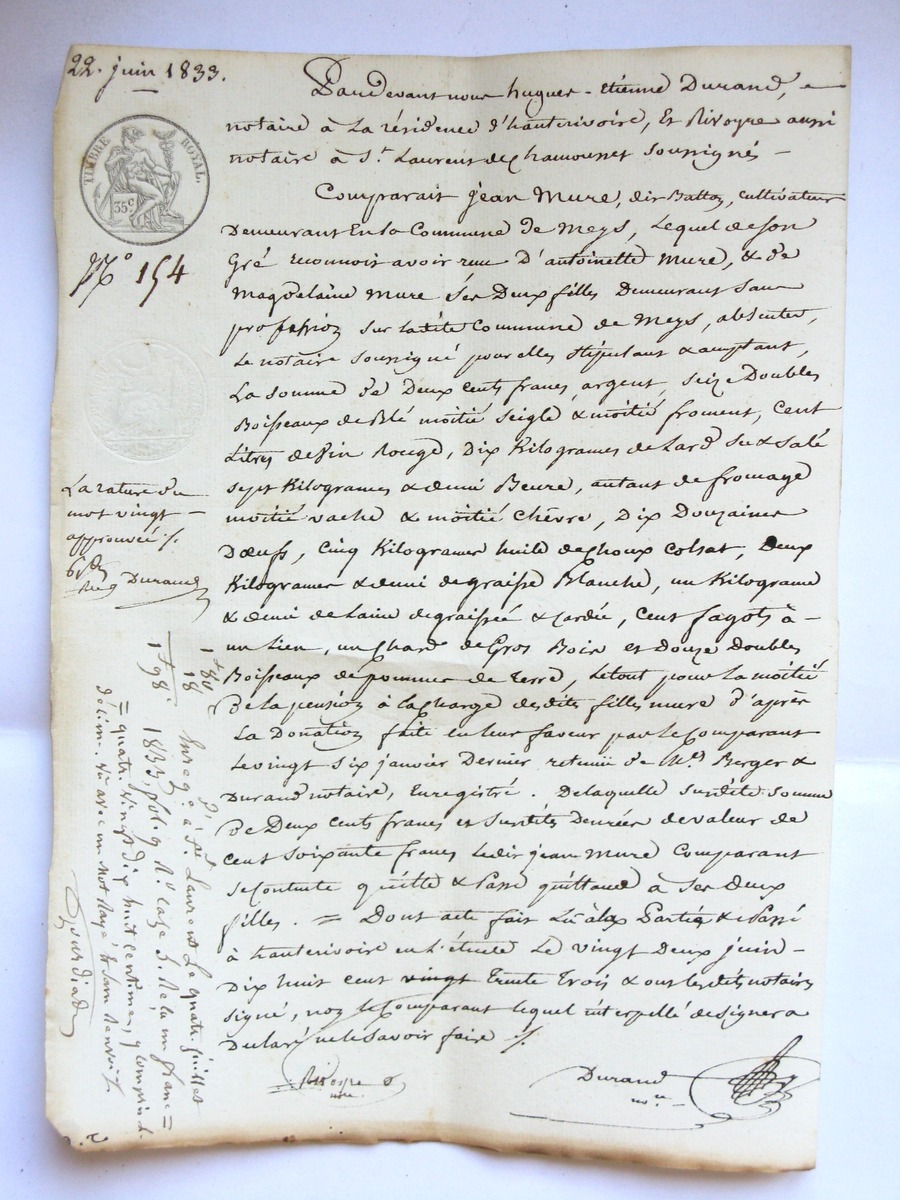 22. juin 1833.
TIMBRE ROYAL.
35c.
N.o 154
La rature du
mot vingt
approuvée ./.
Durand
Pardevant nous hugues-Etienne Durand,
notaire à La résidence d'hauterivoire, Et Rivoyre aussi
notaire à St. Laurent de Chamousset soussignés –
Comparait jean Mure, dit Battoz, cultivateur
Demeurant En la Commune de Meys, Lequel de son
Gré reconnoit avoir reçu D'antoinette Mure, & de
Magdelaine Mure ses Deux filles Demeurant sans
profession sur ladite Commune de Meys, absentes,
Le notaire soussigné pour elles stipulant & acceptant,
La somme de Deux cents francs argent, seize Doubles
Boisseaux de Blé moitié seigle & moitié froment, Cent
Litres de vin Rouge, Dix Kilogrames de Lard sec & salé
sept Kilogrames & demi Beure, autant de fromage
moitié vache & moitié chèvre, Dix Douzaines
D'œufs, Cinq Kilogrames huile de choux Colsat, Deux
Kilogrames & demi de graisse Blanche, un Kilograme
& demi de Laine degraissée & cardée, Cent fagots à –
un Lien, un Chard de Gros Bois et Douze Doubles
Boisseaux de pommes de Terre, Le tout pour La moitié
De la pension à la charge desdites filles mure D'après
La Donation faite en leur faveur par le Comparant
Le vingt six janvier Dernier retenue de Mes. Berger &
Durand notaire, Enregistré. De laquelle susdite somme
de Deux cents francs et susdites Denrées de valeur de
Cent soixante francs Ledit jean Mure Comparant
se Contente quitte & Passe quittance à ses deux
filles. = Dont acte fait Lu à la Partie & Passé
à hauterivoire en L'étude Le vingt Deux juin –
Dix huit cent vingt Trente Trois & ont lesdits notaires
signé, non le Comparant lequel interpellé de signer a
Declaré ne le savoir faire ./.
Durand
nre.
1 f 80 c
18
1 f 98.
Enregé à St Laurent Le quatre juillet
1833, fol. 9 Ro. case 5. Reçu un franc =
= quatre vingt dix huit centimes, y compris le
décime.